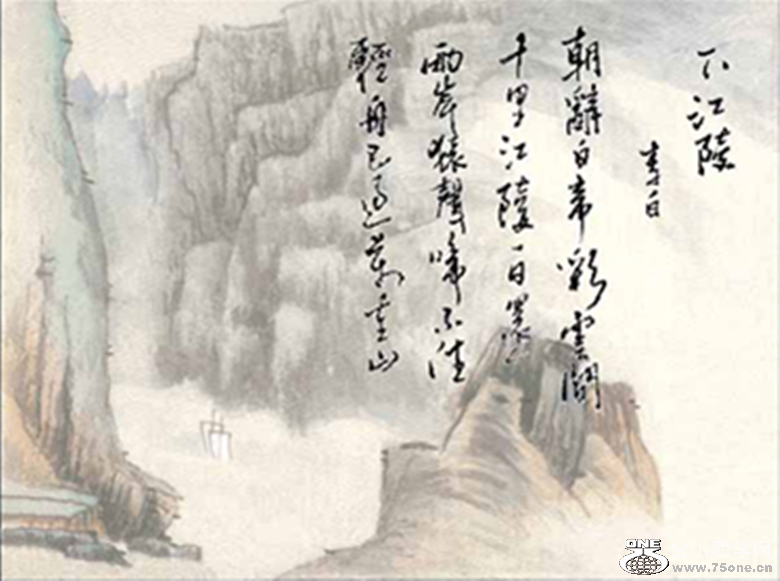 下江陵
李白
朝辭白帝彩雲間
千里江陵一日還
兩岸猿聲啼不住
輕舟已過萬重山
ONE
www.75one.cn